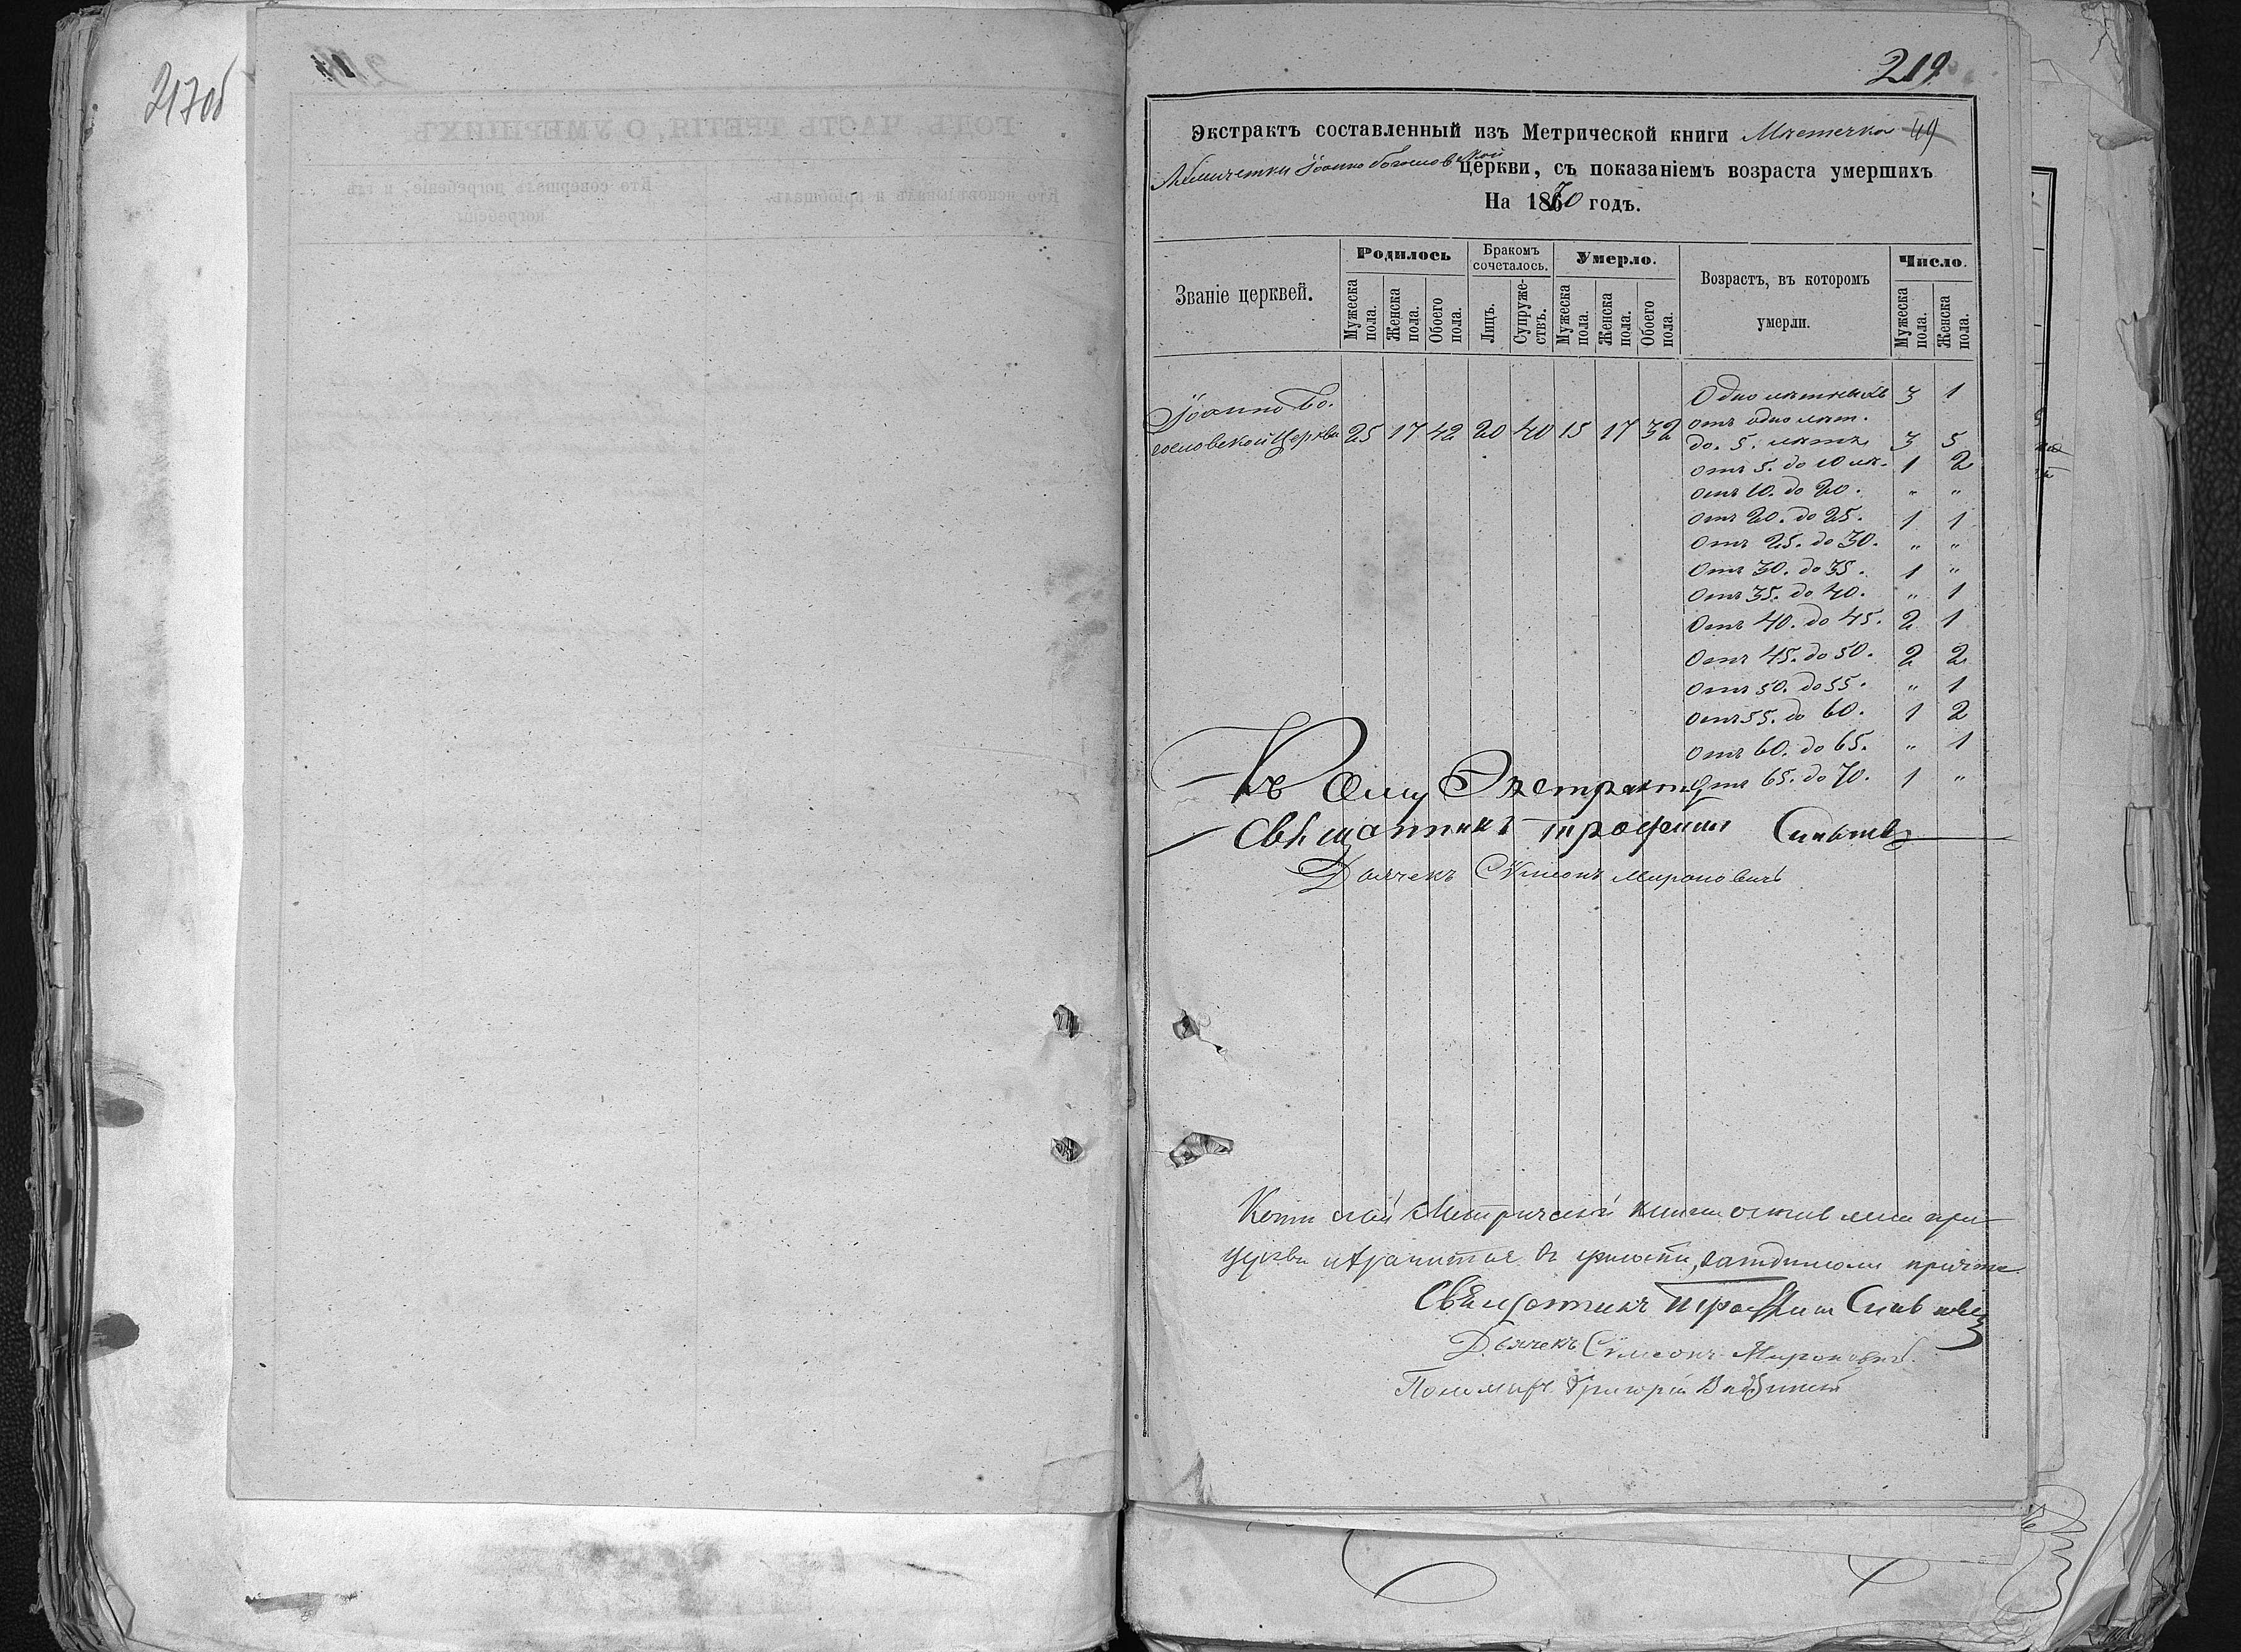 217об
219
Экстрактъ составленный изъ Метрической книги Мѣстечка 49
Іоанно Богословской церкви, съ показаніемъ возраста умершихъ
На 1870 годъ.
Званіе церквей.
Родилось
Бракомъ сочеталось.
Умерло.
Возрастъ, въ которомъ умерли.
Число.
Мужеска пола.
Женска пола.
Обоего пола.
Лицъ.
Супружествъ.
Мужеска пола.
Женска пола.
Обоего пола.
Мужеска пола.
Женска пола.
Іоанно Бо.
гословской Церкви 25 17 42 20 40 15 17 32
Однолѣтныхъ 3 1
отъ одно лѣт.
до. 5. лѣтъ 3 5
отъ 5. до 10 лѣ. 1 2
отъ 10. до 20. " "
отъ 20. до 25. 1 1
отъ 25. до 30. " "
отъ 30. до 35. 1 "
отъ 35. до 40. " 1
отъ 40. до 45. 2 1
отъ 45. до 50. 2 2
отъ 50. до 55. " 1
отъ 55. до 60. 1 2
отъ 60. до 65. " 1
отъ 65. до 70. 1 "
Къ Сему Экстракту
Священникъ Трофимъ
Дьячекъ Сѵмеонъ Мироновичъ
Копія сей Метрической книги оставлена при
церкви и хранится въ цѣлости, причта
Священникъ Трофимъ
Дьячекъ Сѵмеонъ Мироновичъ.
Пономарь Григорій
ГОДЪ, ЧАСТЬ ТРЕТІЯ, О УМЕРШИХЪ
Кто исповѣдывалъ и пріобщалъ.
Кто совершалъ погребеніе, и гдѣ погребены.